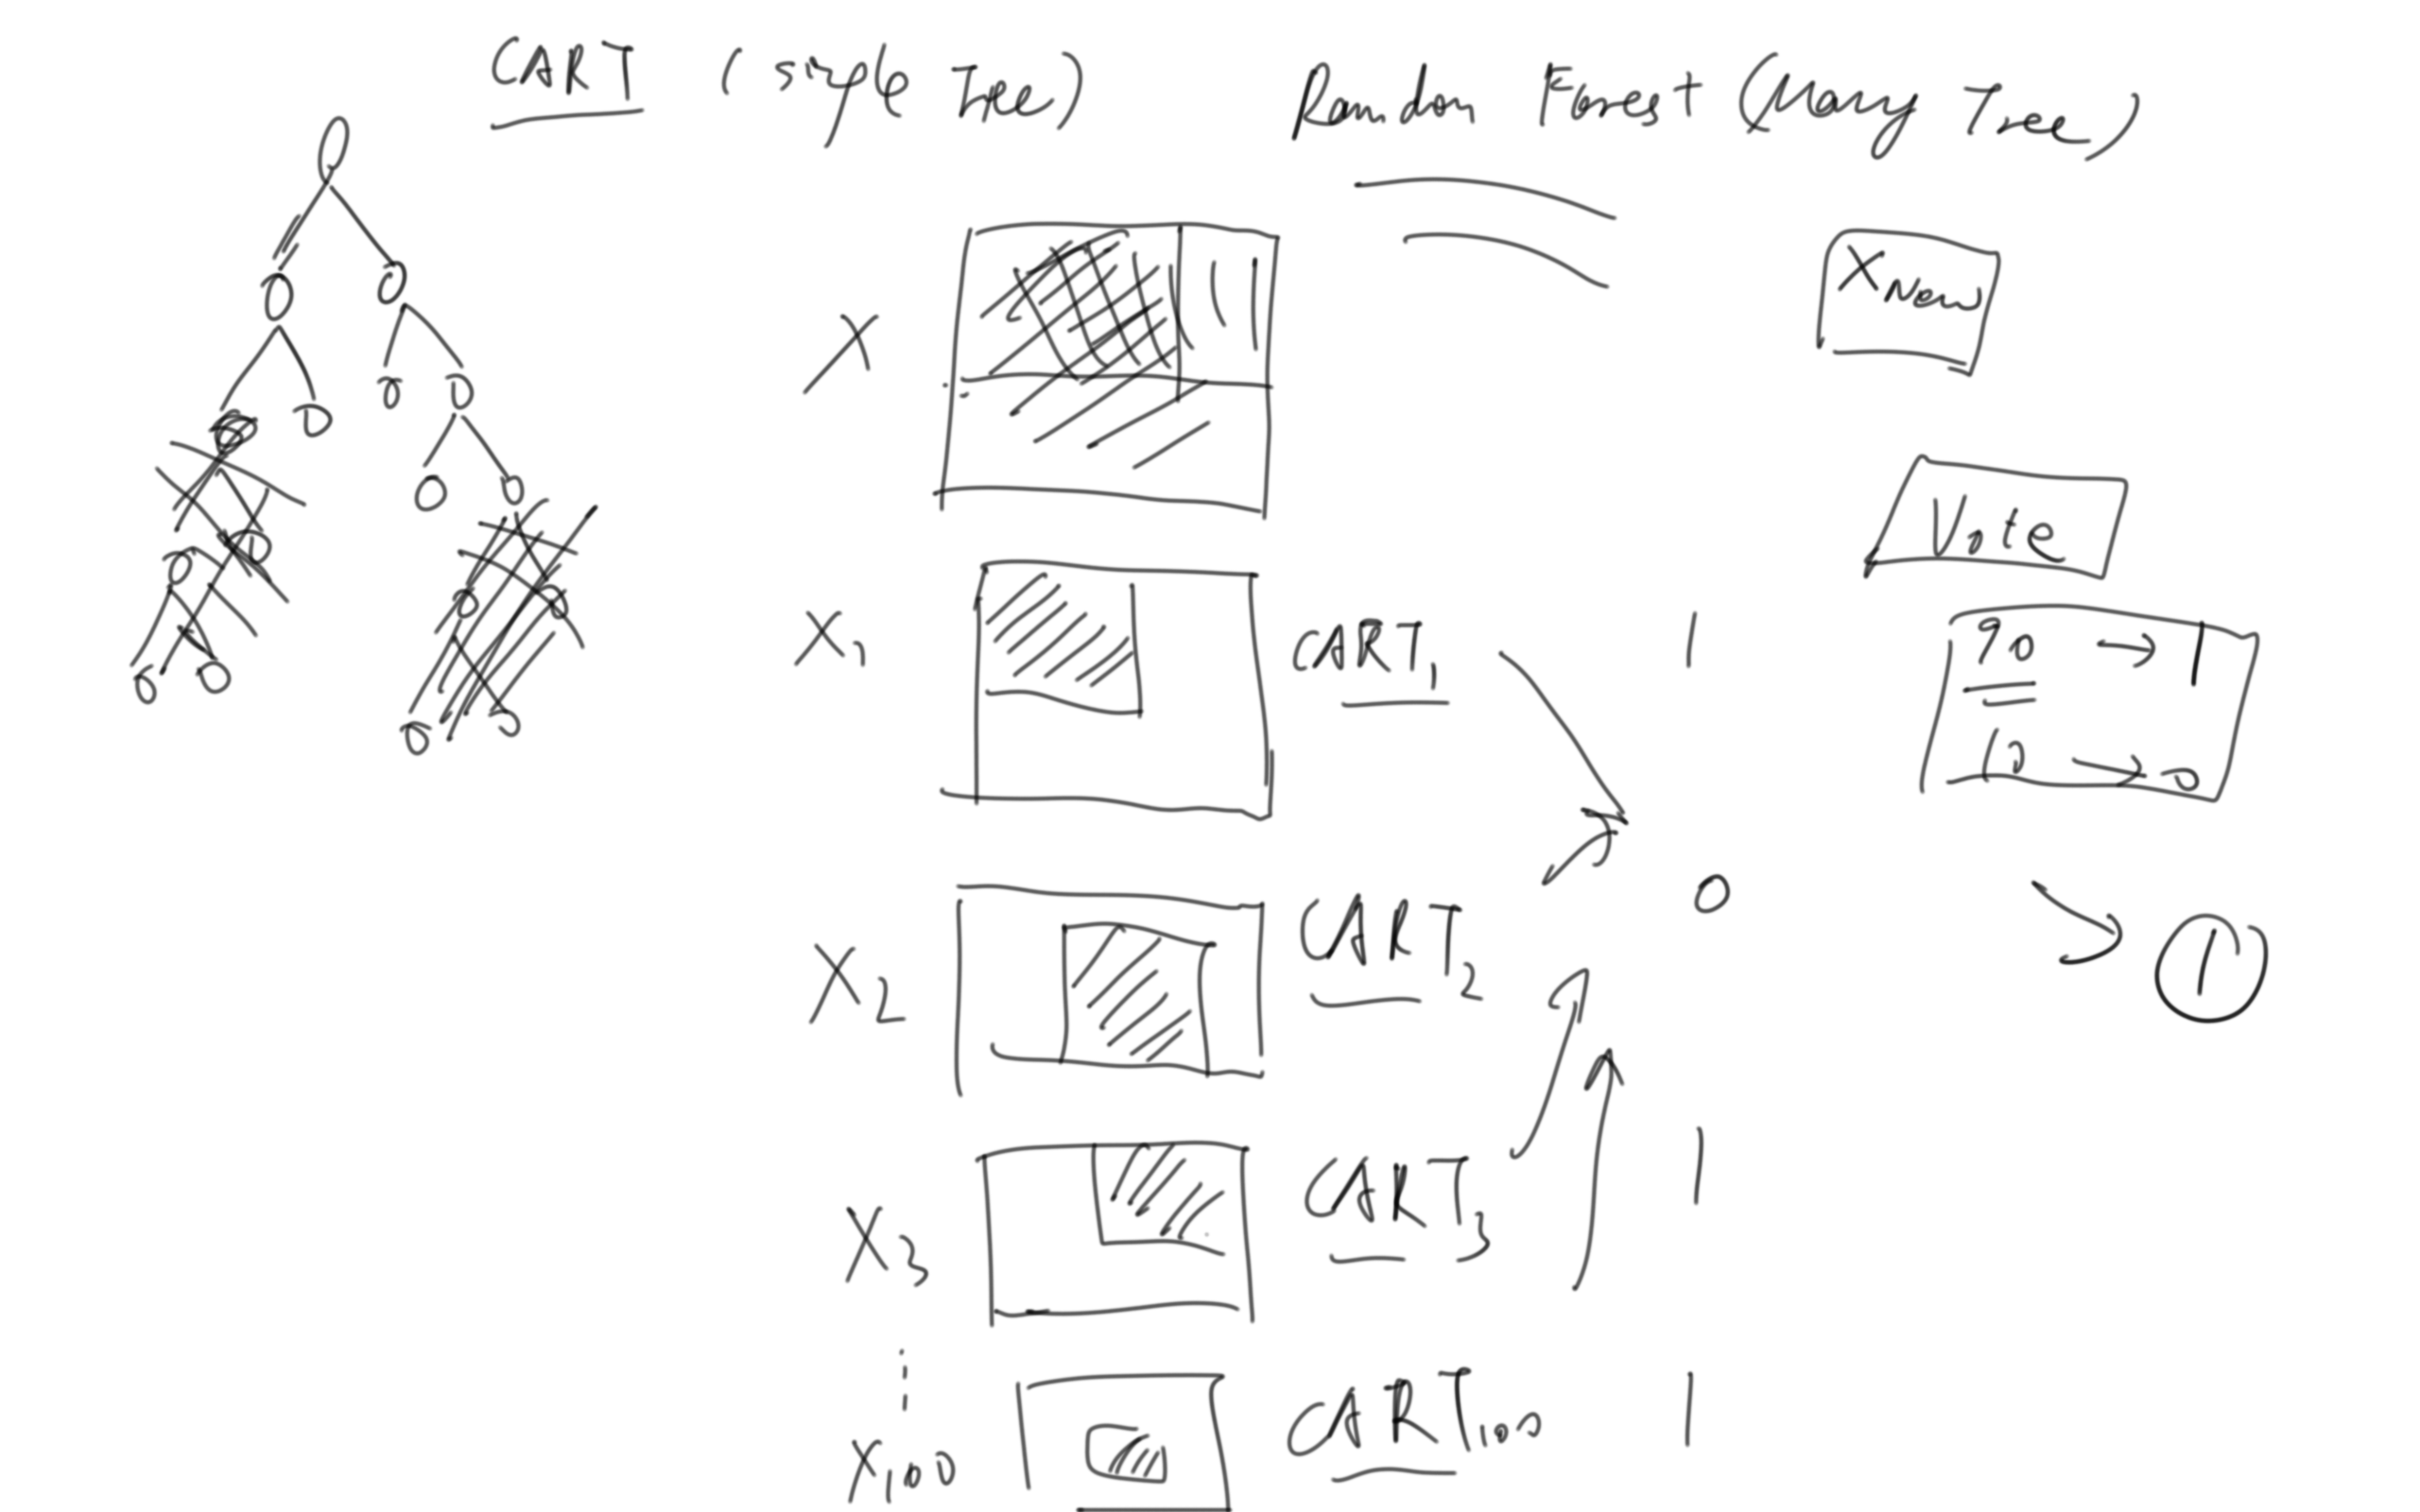 CART (single Tree) Random Forest (Many Tree)
X
X new
Vote
X1 CART1 1
70 → 1
10 → 0
X2 CART2 0
1
X3 CART3 1
X100 CART100 1